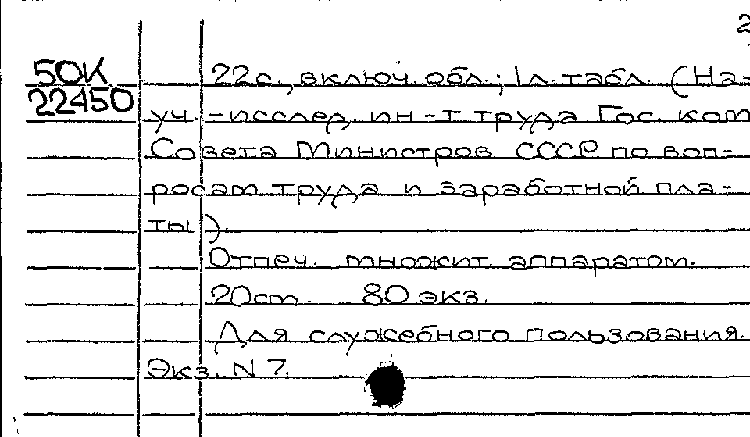 2
50К 22с., включ. обл.; 1л. табл. (На-
22450 уч.-исслед. ин-т труда Гос. ком
Совета Министров СССР по воп-
росам труда и заработной пла-
ты).
Отпеч. множит. аппаратом.
20см 80 экз.
Для служебного пользования.
Экз. N 7.